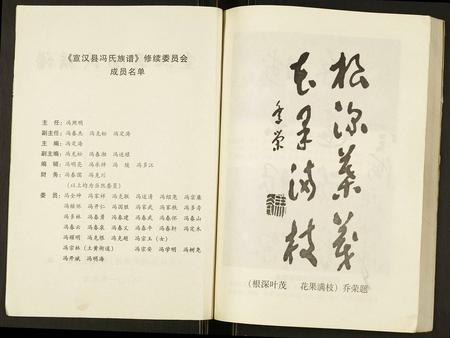 《宣汉县冯氏族谱》修续委员会
成员名单
主任：冯照明
副主任：冯春杰 冯克松 冯定海
主编：冯定海
副主编：冯克松 冯春湘 冯述雄
编辑：冯明亮 冯永祥 冯陵 冯多江
财务：冯春儒 冯克川
（以上均为当然委员）
委员：冯全坤 冯家祥 冯克联 冯述清 冯绍尧 冯宗廉
冯开仁 冯国胜 冯家武 冯家轶 冯多寿
冯多林 冯春勇 冯春建 冯春武 冯春怀 冯春山
冯春云 冯春泉 冯春天 冯春平 冯春轩 冯定木
冯顺明 冯克恨 冯克超 冯宗玉（女）
冯宗林（土黄街道） 冯宗安 冯学明 冯树尧
冯开斌 冯明海
根深葉茂
花果满枝
乔荣
（根深叶茂 花果满枝）乔荣题